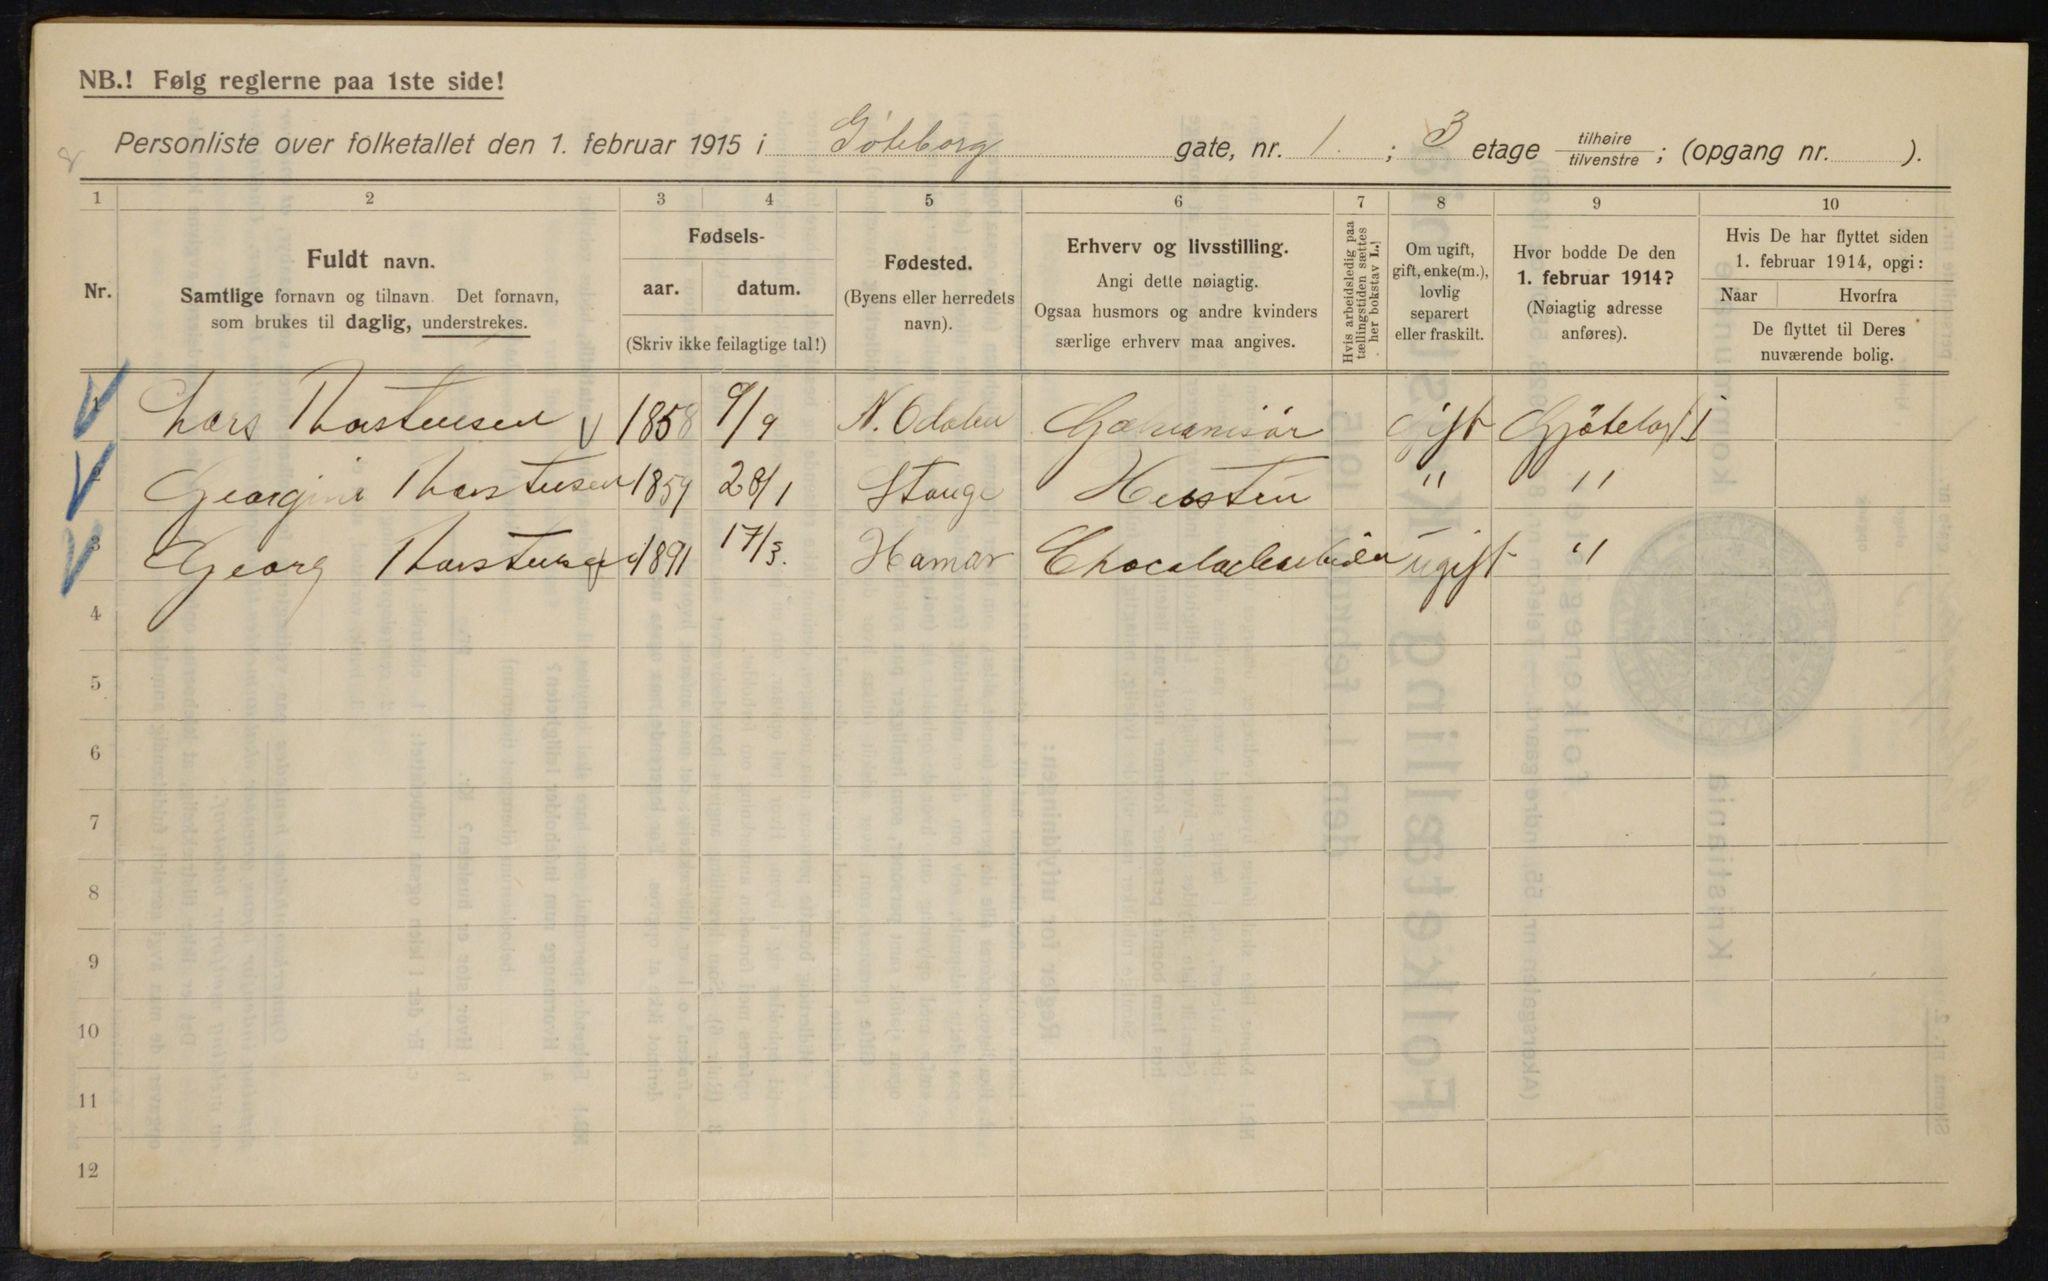 NB.! Følg reglerne paa 1ste side!
Personliste over folketallet den 1. februar 1915 i Göteborg gate, nr. 1. ; 3 etage tilhøire/tilvenstre ; (opgang nr. ).
1 2 3 4 5 6 7 8 9 10
Nr.
Fuldt navn.
Samtlige fornavn og tilnavn. Det fornavn,
som brukes til daglig, understrekes.
Fødsels-
aar. datum.
(Skriv ikke feilagtige tal!)
Fødested.
(Byens eller herredets
navn).
Erhverv og livsstilling.
Angi dette nøiagtig.
Ogsaa husmors og andre kvinders
særlige erhverv maa angives.
Hvis arbeidsledig paa
tællingstiden sættes
her bokstav L.!
Om ugift,
gift, enke(m.),
lovlig
separert
eller fraskilt.
Hvor bodde De den
1. februar 1914?
(Nøiagtig adresse
anføres).
Hvis De har flyttet siden
1. februar 1914, opgi:
Naar Hvorfra
De flyttet til Deres
nuværende bolig.
1 Lars Thorstensen 1858 9/9 N. Odalen Galvanisör gift Gjötebog 1
2 Georgine Thorstensen 1859 28/1 Stange Hustru " "
3 Georg Thorstensen 1891 17/3. Hamar Chocoladearbeider ugift "
4
5
6
7
8
9
10
11
12